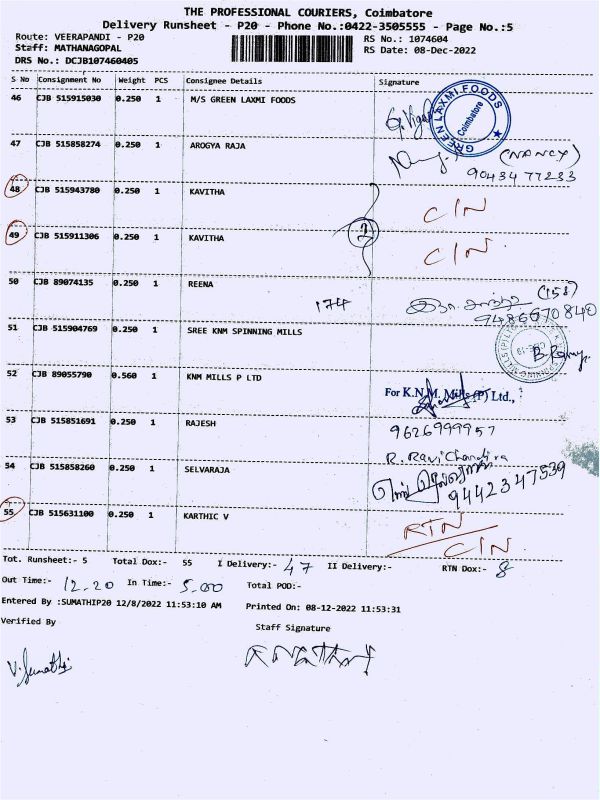 THE PROFESSIONAL COURIERS, Coimbatore
Delivery Runsheet - P20 - Phone No.:0422-3505555 - Page No.:5
Route: VEERAPANDI - P20
RS No.: 1074604
Staff: MATHANAGOPAL
RS Date: 08-Dec-2022
DRS No.: DCJB107460405
S No Consignment No Weight PCS Consignee Details Signature
46 CJB 515915030 0.250 1 M/S GREEN LAXMI FOODS
GREEN LAXMI FOODS Coimbatore
47 CJB 515858274 0.250 1 AROGYA RAJA
(NANCY)
9043477233
48 CJB 515943780 0.250 1 KAVITHA CIN
49 CJB 515911306 0.250 1 KAVITHA CIN
2
50 CJB 89074135 0.250 1 REENA
174
(158)
9486670840
51 CJB 515904769 0.250 1 SREE KNM SPINNING MILLS
52 CJB 89055790 0.560 1 KNM MILLS P LTD
For K.N.M. Mills (P) Ltd.,
53 CJB 515851691 0.250 1 RAJESH
9626999957
R. RaviChandira
54 CJB 515858260 0.250 1 SELVARAJA
9442347539
55 CJB 515631100 0.250 1 KARTHIC V
RTN
CIN
Tot. Runsheet:- 5 Total Dox:- 55 I Delivery:- 47 II Delivery:- RTN Dox:- 8
Out Time:- 12.20 In Time:- 5.00 Total POD:-
Entered By :SUMATHIP20 12/8/2022 11:53:10 AM Printed On: 08-12-2022 11:53:31
Verified By Staff Signature
V. Sumathi